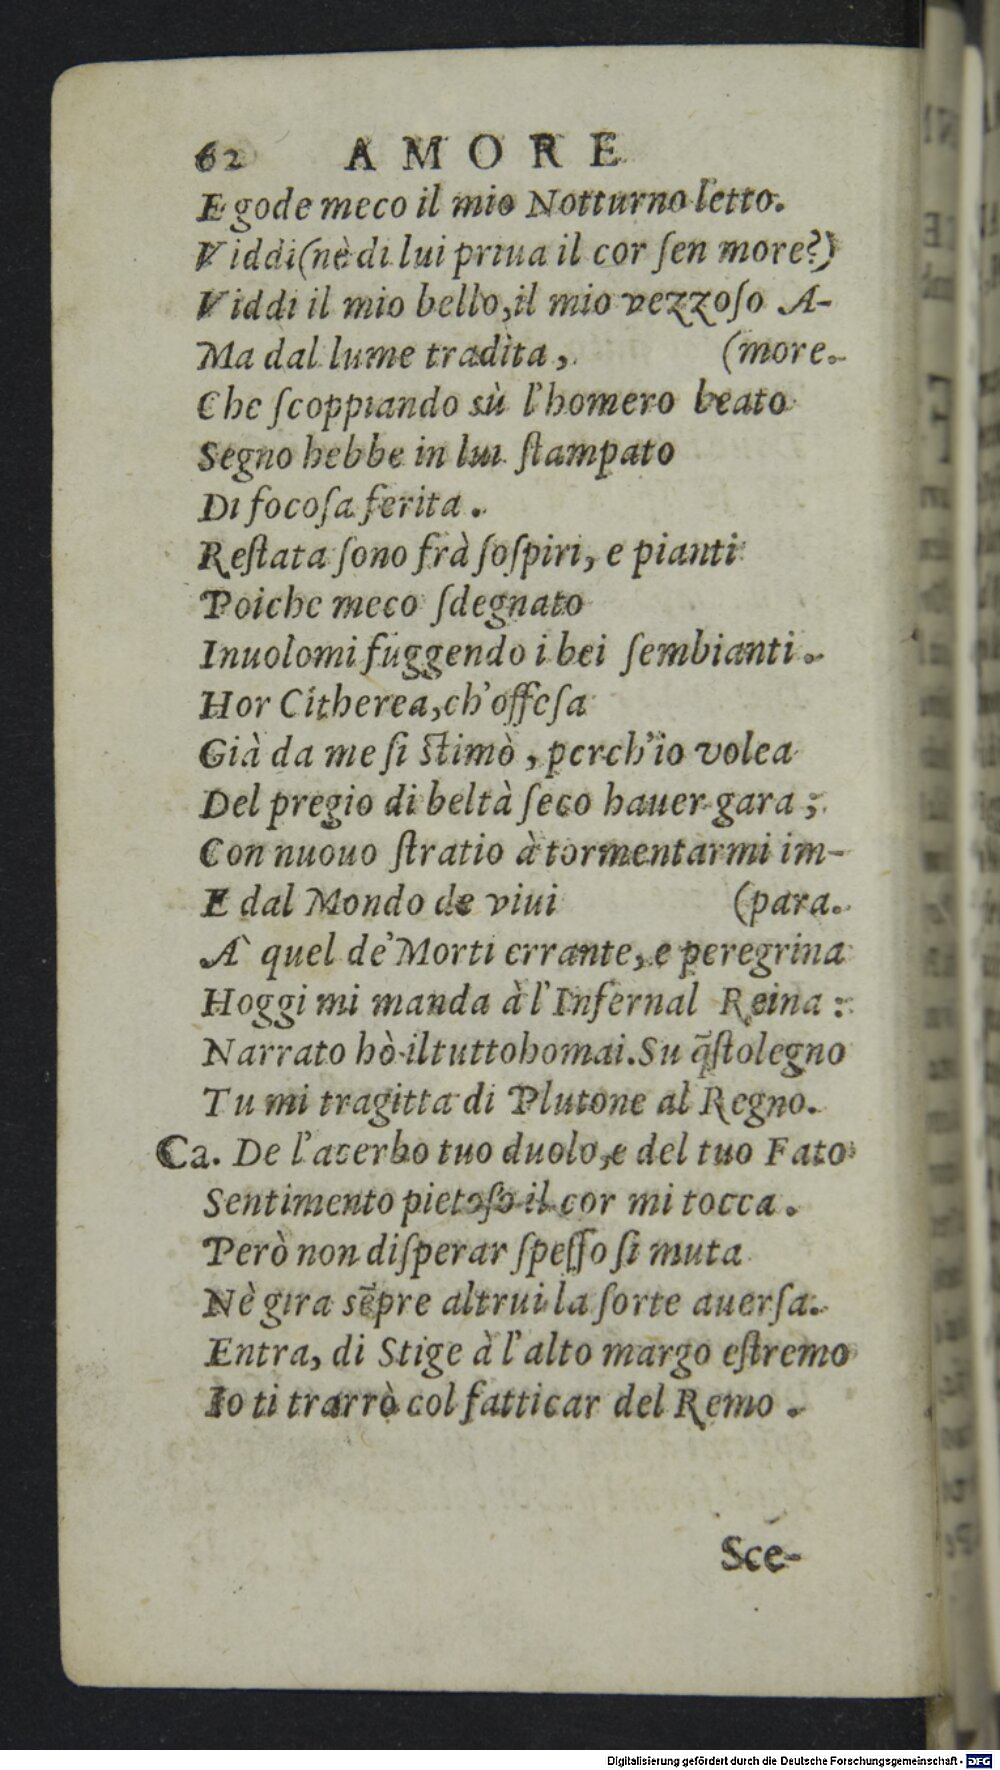 62 AMORE
E gode meco il mio Notturno letto.
Viddi (nè di lui priua il cor ſen more?)
Viddi il mio bello, il mio vezzoſo A-
Ma dal lume tradita, (more.
Che ſcoppiando sù l'homero beato
Segno hebbe in lui ſtampato
Di focoſa ferita.
Reſtata ſono frà ſoſpiri, e pianti
Poiche meco ſdegnato
Inuolomi fuggendo i bei ſembianti.
Hor Citherea, ch'offeſa
Già da me ſi ſtimò, perch'io volea
Del pregio di beltà ſeco hauer gara;
Con nuouo ſtratio à tormentarmi im-
E dal Mondo de viui (para.
A' quel de' Morti errante, e peregrina
Hoggi mi manda à l'Infernal Reina:
Narrato hò il tutto homai. Su q̃ſto legno
Tu mi tragitta di Plutone al Regno.
Ca. De l'acerbo tuo duolo, e del tuo Fato
Sentimento pietoſo il cor mi tocca.
Però non diſperar ſpeſſo ſi muta
Nè gira sẽpre altrui la ſorte auerſa.
Entra, di Stige à l'alto margo eſtremo
Io ti trarrò col fatticar del Remo.
Sce-
Digitalisierung gefördert durch die Deutsche Forschungsgemeinschaft - DFG